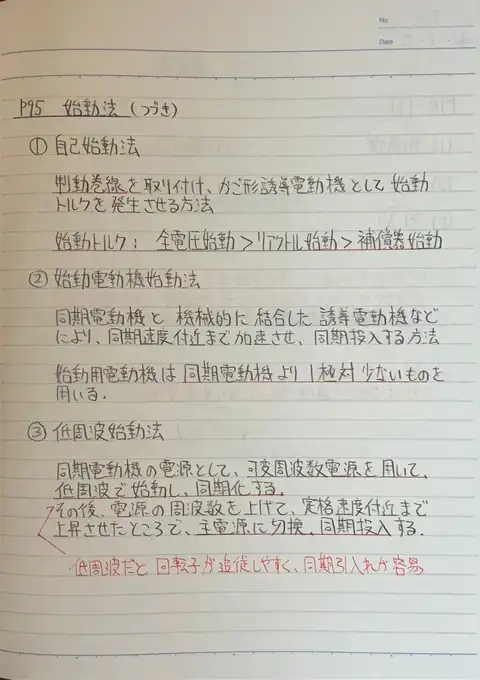 No.
Date
P95 始動法 (つづき)
① 自己始動法
制動巻線を取り付け、かご形誘導電動機として始動
トルクを発生させる方法
始動トルク: 全電圧始動 > リアクトル始動 > 補償器始動
② 始動電動機始動法
同期電動機と 機械的に 結合した 誘導電動機など
により、同期速度付近まで加速させ、同期投入する方法
始動用電動機は同期電動機より 1極対 少ないものを
用いる.
③ 低周波始動法
同期電動機の電源として、可変周波数電源を用いて、
低周波で始動し、同期化する.
その後、電源の周波数を上げて、定格速度付近まで
上昇させたところで、主電源に切換、同期投入する.
低周波だと 回転子が追従しやすく、同期引入れが容易